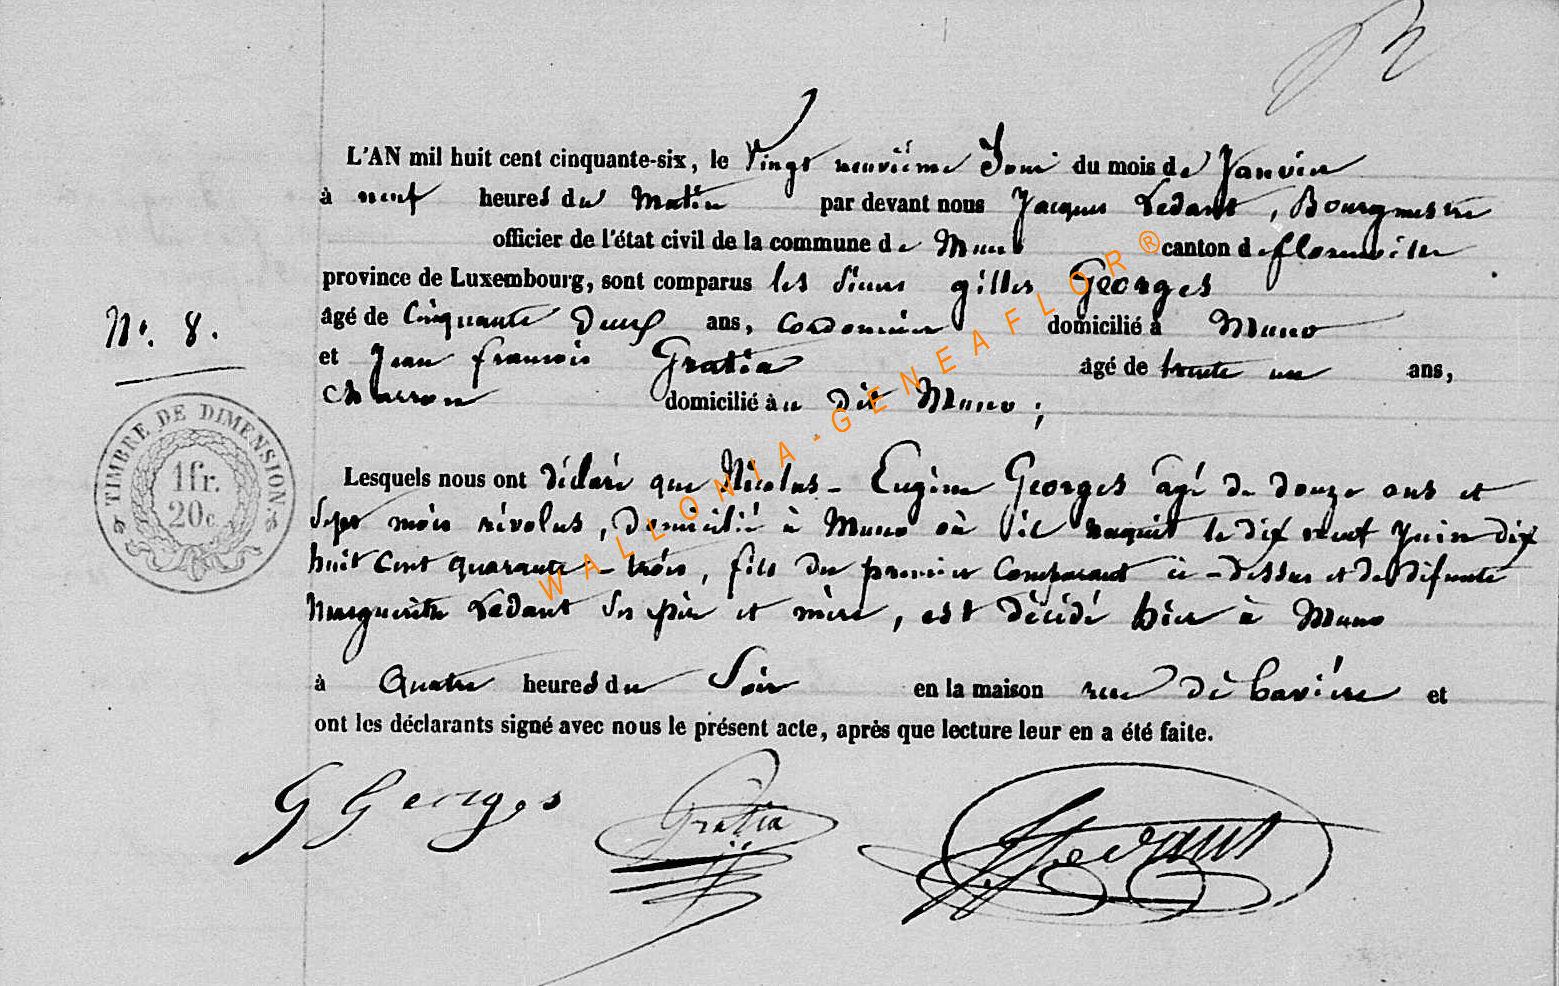 L'AN mil huit cent cinquante-six, le Vingt neuvième Jour du mois de Janvier
à neuf heures du Matin par devant nous Jacques Ledant, Bourgmestre
officier de l'état civil de la commune de Muno canton de florenville
province de Luxembourg, sont comparus les Sieurs gilles Georges
âgé de Cinquante Deux ans, Cordonnier domicilié à Muno
et Jean françois Gratia âgé de trente un ans,
Charron domicilié au Dit Muno ;
N°. 8.
TIMBRE DE DIMENSION.
1fr.
20c.
Lesquels nous ont déclaré que Nicolas - Eugène Georges âgé de douze ans et
Sept mois révolus, Domicilié à Muno où il naquit le dix neuf Juin dix
huit Cent quarante - trois, fils du premier Comparant ci-dessus et de défunte
Marguerite Ledant Ses père et mère, est décédé hier à Muno
à Quatre heures du Soir en la maison rue de bavière et
ont les déclarants signé avec nous le présent acte, après que lecture leur en a été faite.
G Georges Gratia J Ledant
WALLONIA-GENEAFLOR®